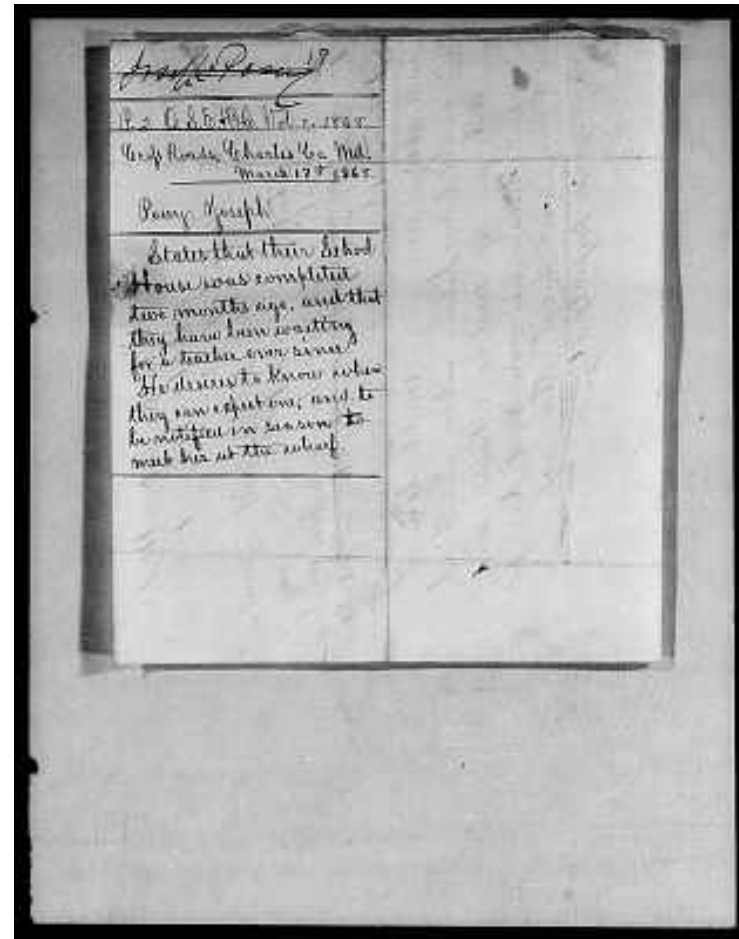 Joseph Posey 19
P. 2 Vol. 1868
Cross Roads, Charles Co Md.
March 17th 1868
Posey Joseph
States that their School
House was completed
two months ago, and that
they have been waitting
for a teacher ever since
He desires to know when
they can expect one, and to
be notified in season to
meet her at the wharf.